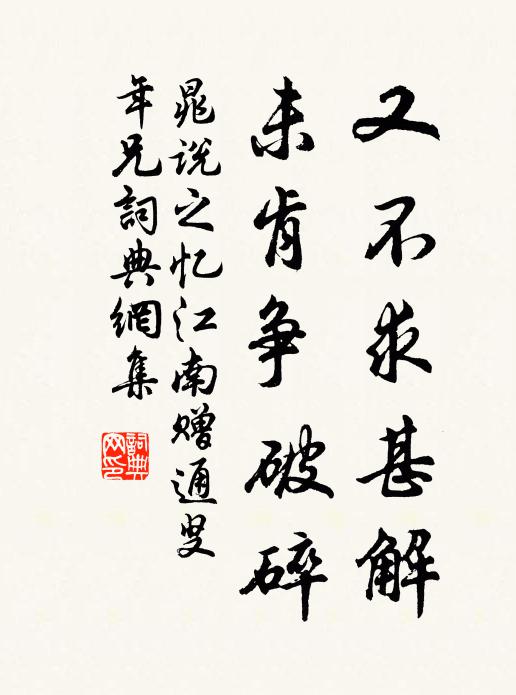 又不求甚解
未肯争破碎
晁说之忆江南赠通叟
年兄詞典網集
詞典
网印